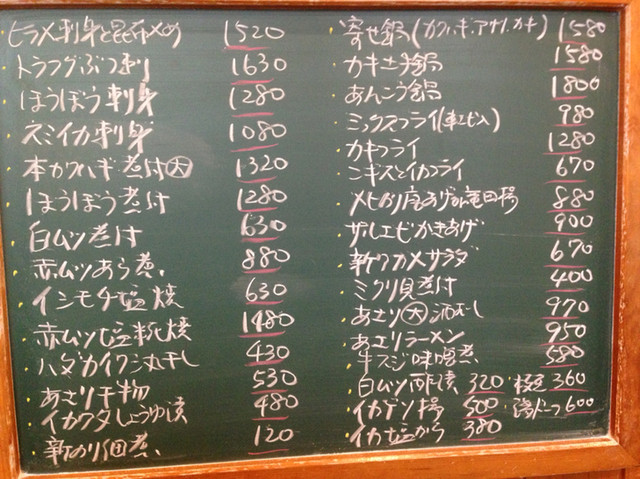 ヒラメ刺身と昆布〆め 1520
トラフグぶつ刺り 1630
ほうぼう刺身 1280
スミイカ刺身 1080
本カワハギ煮付大 1320
ほうぼう煮付 1280
白ムツ煮付 630
赤ムツあら煮 880
イシモチ塩焼 630
赤ムツ塩糀焼 1480
ハダカイワシ丸干し 430
あさり干物 530
イカワタしょうゆ漬 480
新のり佃煮 120
寄せ鍋(カワハギ.アサリ.カキ) 1580
カキ土手鍋 1580
あんこう鍋 1800
ミックスフライ(車エビ入) 980
カキフライ 1280
ニギスとイカフライ 670
メヒカリ唐あげか竜田揚 880
ザルエビかきあげ 900
新ワカメサラダ 670
ミクリ貝煮付 400
あさり大酒むし 970
あさりラーメン 950
牛スジ味噌煮 580
白ムツ酢漬 320 360
イカゲソ揚 500 600
イカ塩から 380